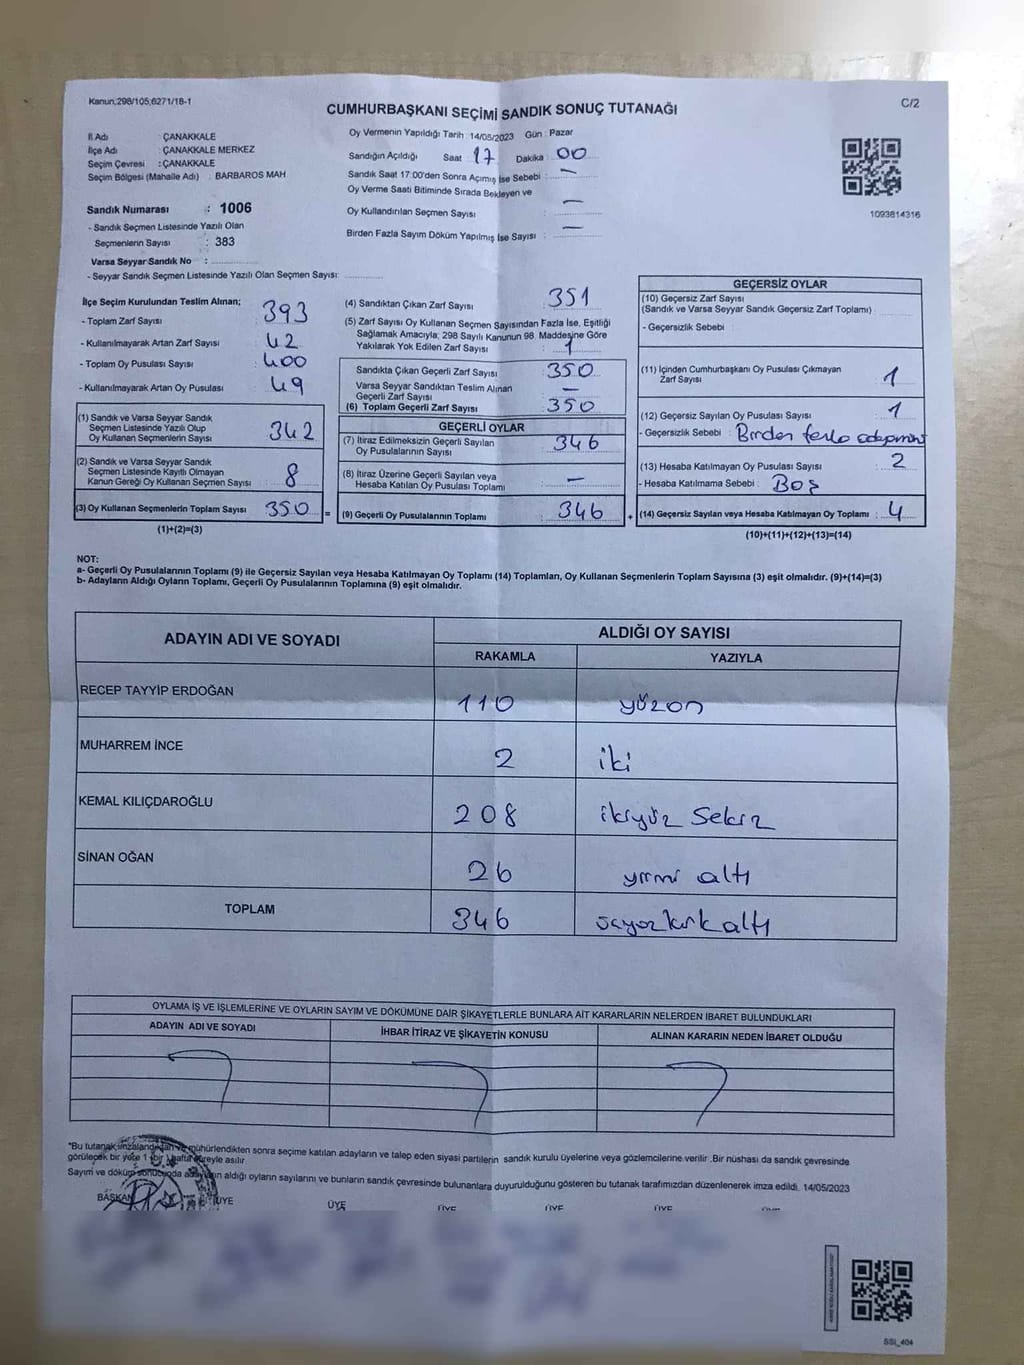 Kanun;298/105;6271/18-1
C/2
CUMHURBAŞKANI SEÇİMİ SANDIK SONUÇ TUTANAĞI
İl Adı : ÇANAKKALE
İlçe Adı : ÇANAKKALE MERKEZ
Seçim Çevresi : ÇANAKKALE
Seçim Bölgesi (Mahalle Adı) : BARBAROS MAH
Sandık Numarası : 1006
- Sandık Seçmen Listesinde Yazılı Olan
Seçmenlerin Sayısı : 383
Varsa Seyyar Sandık No :
- Seyyar Sandık Seçmen Listesinde Yazılı Olan Seçmen Sayısı:
Oy Vermenin Yapıldığı Tarih : 14/05/2023 Gün : Pazar
Sandığın Açıldığı Saat 17 Dakika : 00
Sandık Saat 17:00'den Sonra Açımış İse Sebebi : —
Oy Verme Saati Bitiminde Sırada Bekleyen ve
Oy Kullandırılan Seçmen Sayısı : —
Birden Fazla Sayım Döküm Yapılmış İse Sayısı : —
1093814316
İlçe Seçim Kurulundan Teslim Alınan;
- Toplam Zarf Sayısı : 393
- Kullanılmayarak Artan Zarf Sayısı : 42
- Toplam Oy Pusulası Sayısı : 400
- Kullanılmayarak Artan Oy Pusulası : 49
(1) Sandık ve Varsa Seyyar Sandık
Seçmen Listesinde Yazılı Olup
Oy Kullanan Seçmenlerin Sayısı : 342
(2) Sandık ve Varsa Seyyar Sandık
Seçmen Listesinde Kayıtlı Olmayan
Kanun Gereği Oy Kullanan Seçmen Sayısı : 8
(3) Oy Kullanan Seçmenlerin Toplam Sayısı : 350
(1)+(2)=(3)
=
(4) Sandıktan Çıkan Zarf Sayısı : 351
(5) Zarf Sayısı Oy Kullanan Seçmen Sayısından Fazla İse, Eşitliği
Sağlamak Amacıyla; 298 Sayılı Kanunun 98. Maddesine Göre
Yakılarak Yok Edilen Zarf Sayısı : 1
Sandıkta Çıkan Geçerli Zarf Sayısı : 350
Varsa Seyyar Sandıktan Teslim Alınan
Geçerli Zarf Sayısı : —
(6) Toplam Geçerli Zarf Sayısı : 350
GEÇERLİ OYLAR
(7) İtiraz Edilmeksizin Geçerli Sayılan
Oy Pusulalarının Sayısı : 346
(8) İtiraz Üzerine Geçerli Sayılan veya
Hesaba Katılan Oy Pusulası Toplamı : —
(9) Geçerli Oy Pusulalarının Toplamı : 346
+
GEÇERSİZ OYLAR
(10) Geçersiz Zarf Sayısı
(Sandık ve Varsa Seyyar Sandık Geçersiz Zarf Toplamı) :
- Geçersizlik Sebebi :
(11) İçinden Cumhurbaşkanı Oy Pusulası Çıkmayan
Zarf Sayısı : 1
(12) Geçersiz Sayılan Oy Pusulası Sayısı : 1
- Geçersizlik Sebebi : Birden fazla
(13) Hesaba Katılmayan Oy Pusulası Sayısı : 2
- Hesaba Katılmama Sebebi : Boş
(14) Geçersiz Sayılan veya Hesaba Katılmayan Oy Toplamı : 4
(10)+(11)+(12)+(13)=(14)
NOT:
a- Geçerli Oy Pusulalarının Toplamı (9) ile Geçersiz Sayılan veya Hesaba Katılmayan Oy Toplamı (14) Toplamları, Oy Kullanan Seçmenlerin Toplam Sayısına (3) eşit olmalıdır. (9)+(14)=(3)
b- Adayların Aldığı Oyların Toplamı, Geçerli Oy Pusulalarının Toplamına (9) eşit olmalıdır.
ADAYIN ADI VE SOYADI
ALDIĞI OY SAYISI
RAKAMLA YAZIYLA
RECEP TAYYİP ERDOĞAN 110 yüzon
MUHARREM İNCE 2 iki
KEMAL KILIÇDAROĞLU 208 ikiyüz sekiz
SİNAN OĞAN 26 yirmi altı
TOPLAM 346 üçyüzkırkaltı
OYLAMA İŞ VE İŞLEMLERİNE VE OYLARIN SAYIM VE DÖKÜMÜNE DAİR ŞİKAYETLERLE BUNLARA AİT KARARLARIN NELERDEN İBARET BULUNDUKLARI
ADAYIN ADI VE SOYADI İHBAR İTİRAZ VE ŞİKAYETİN KONUSU ALINAN KARARIN NEDEN İBARET OLDUĞU
*Bu tutanak imzalandıktan ve mühürlendikten sonra seçime katılan adayların ve talep eden siyasi partilerin sandık kurulu üyelerine veya gözlemcilerine verilir. Bir nüshası da sandık çevresinde
görülecek bir yere 1 (bir) hafta süreyle asılır.
Sayım ve döküm sonucunda adayların aldığı oyların sayılarını ve bunların sandık çevresinde bulunanlara duyurulduğunu gösteren bu tutanak tarafımızdan düzenlenerek imza edildi. 14/05/2023
BAŞKAN ÜYE ÜYE ÜYE ÜYE ÜYE
SSI_404